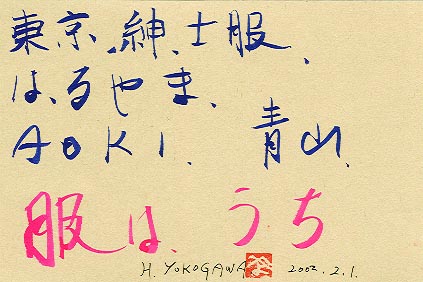 東京紳士服、
はるやま、
AOKI. 青山.
服は、うち
H. YOKOGAWA 2002.2.1.